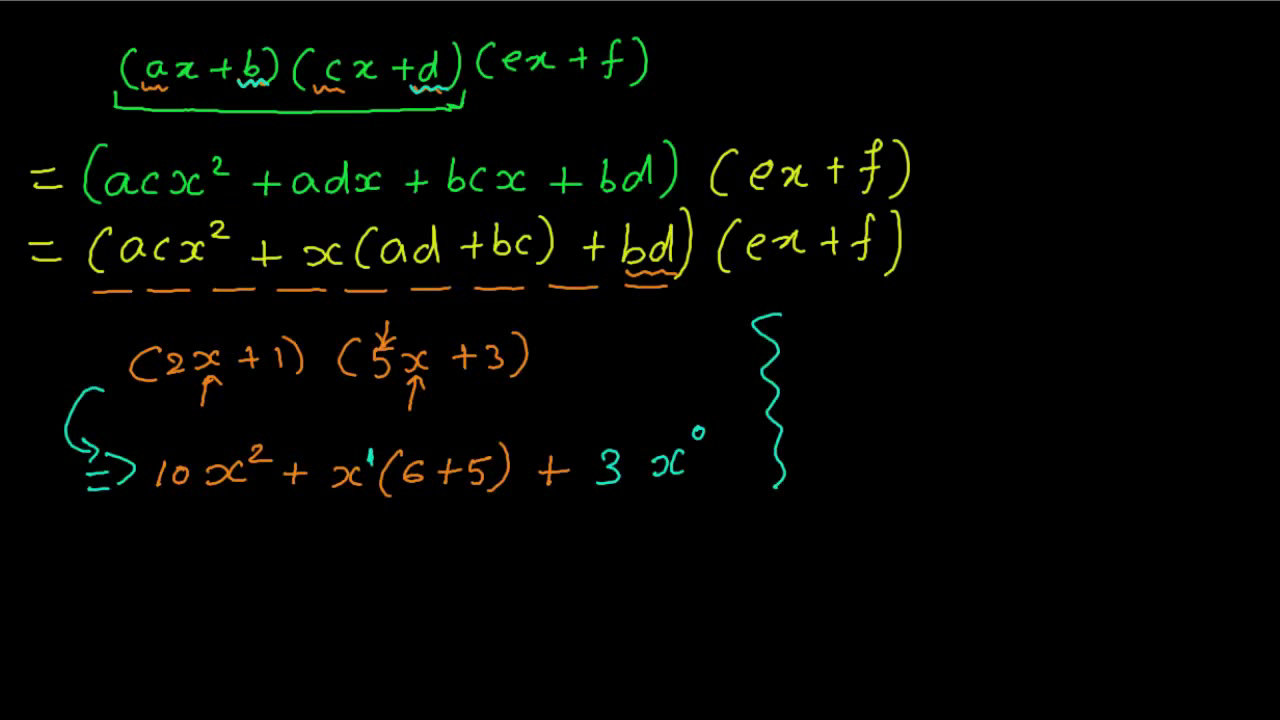 (ax + b)(cx + d)(ex + f)
= (acx² + adx + bcx + bd) (ex + f)
= (acx² + x(ad + bc) + bd) (ex + f)
(2x + 1) (5x + 3)
=> 10x² + x¹(6+5) + 3x⁰